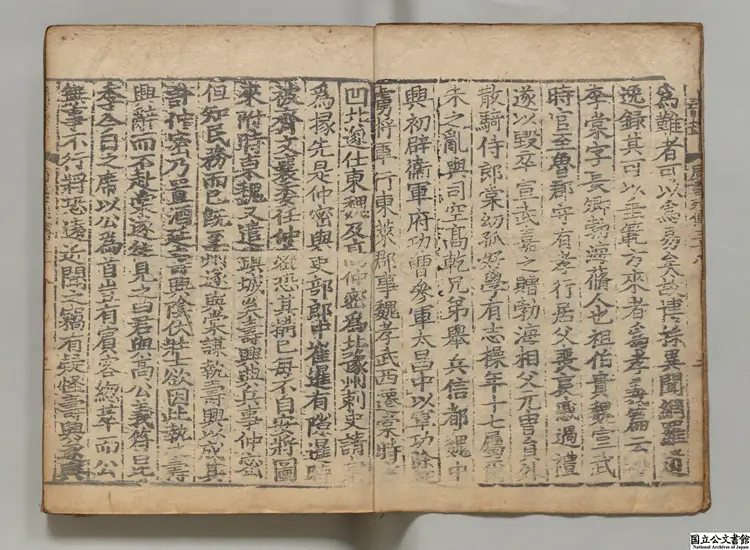 為難者可以為易矣故博採異聞網羅遺
逸錄其可以垂範方來者為孝義篇云
李棠字長卿勃海蓨人也祖伯貴魏宣武
時官至魯郡守有孝行居父喪哀慼過禮
遂以毀卒宣武嘉之贈勃海相父元冑員外
散騎侍郎棠幼孤好學有志操年十七屬
朱之亂與司空高乾兄弟舉兵信都魏中
興初辟衞軍府功曹參軍太昌中以軍功除
虜將軍行東萊郡事魏孝武西遷棠時
凹北遂仕東魏及高仲密為北豫州刺史請
為掾先是仲密與吏部郎中崔暹有隙暹時
被齊文襄委任仲密恐其搆己每不自安將圖
來附時東魏又遣鎮城奚壽興典兵事仲密
但知民務而已既至州遂與棠謀執壽興以成其
計仲密乃置酒延壽興陰伏壯士欲因此執壽
興辭而不赴棠遂往見之曰君與高公義符昆
季今日之席以公為首豈有賓客總萃而公
無事不行將恐遠近聞之竊有疑怪壽興遂與
国立公文書館
National Archives of Japan